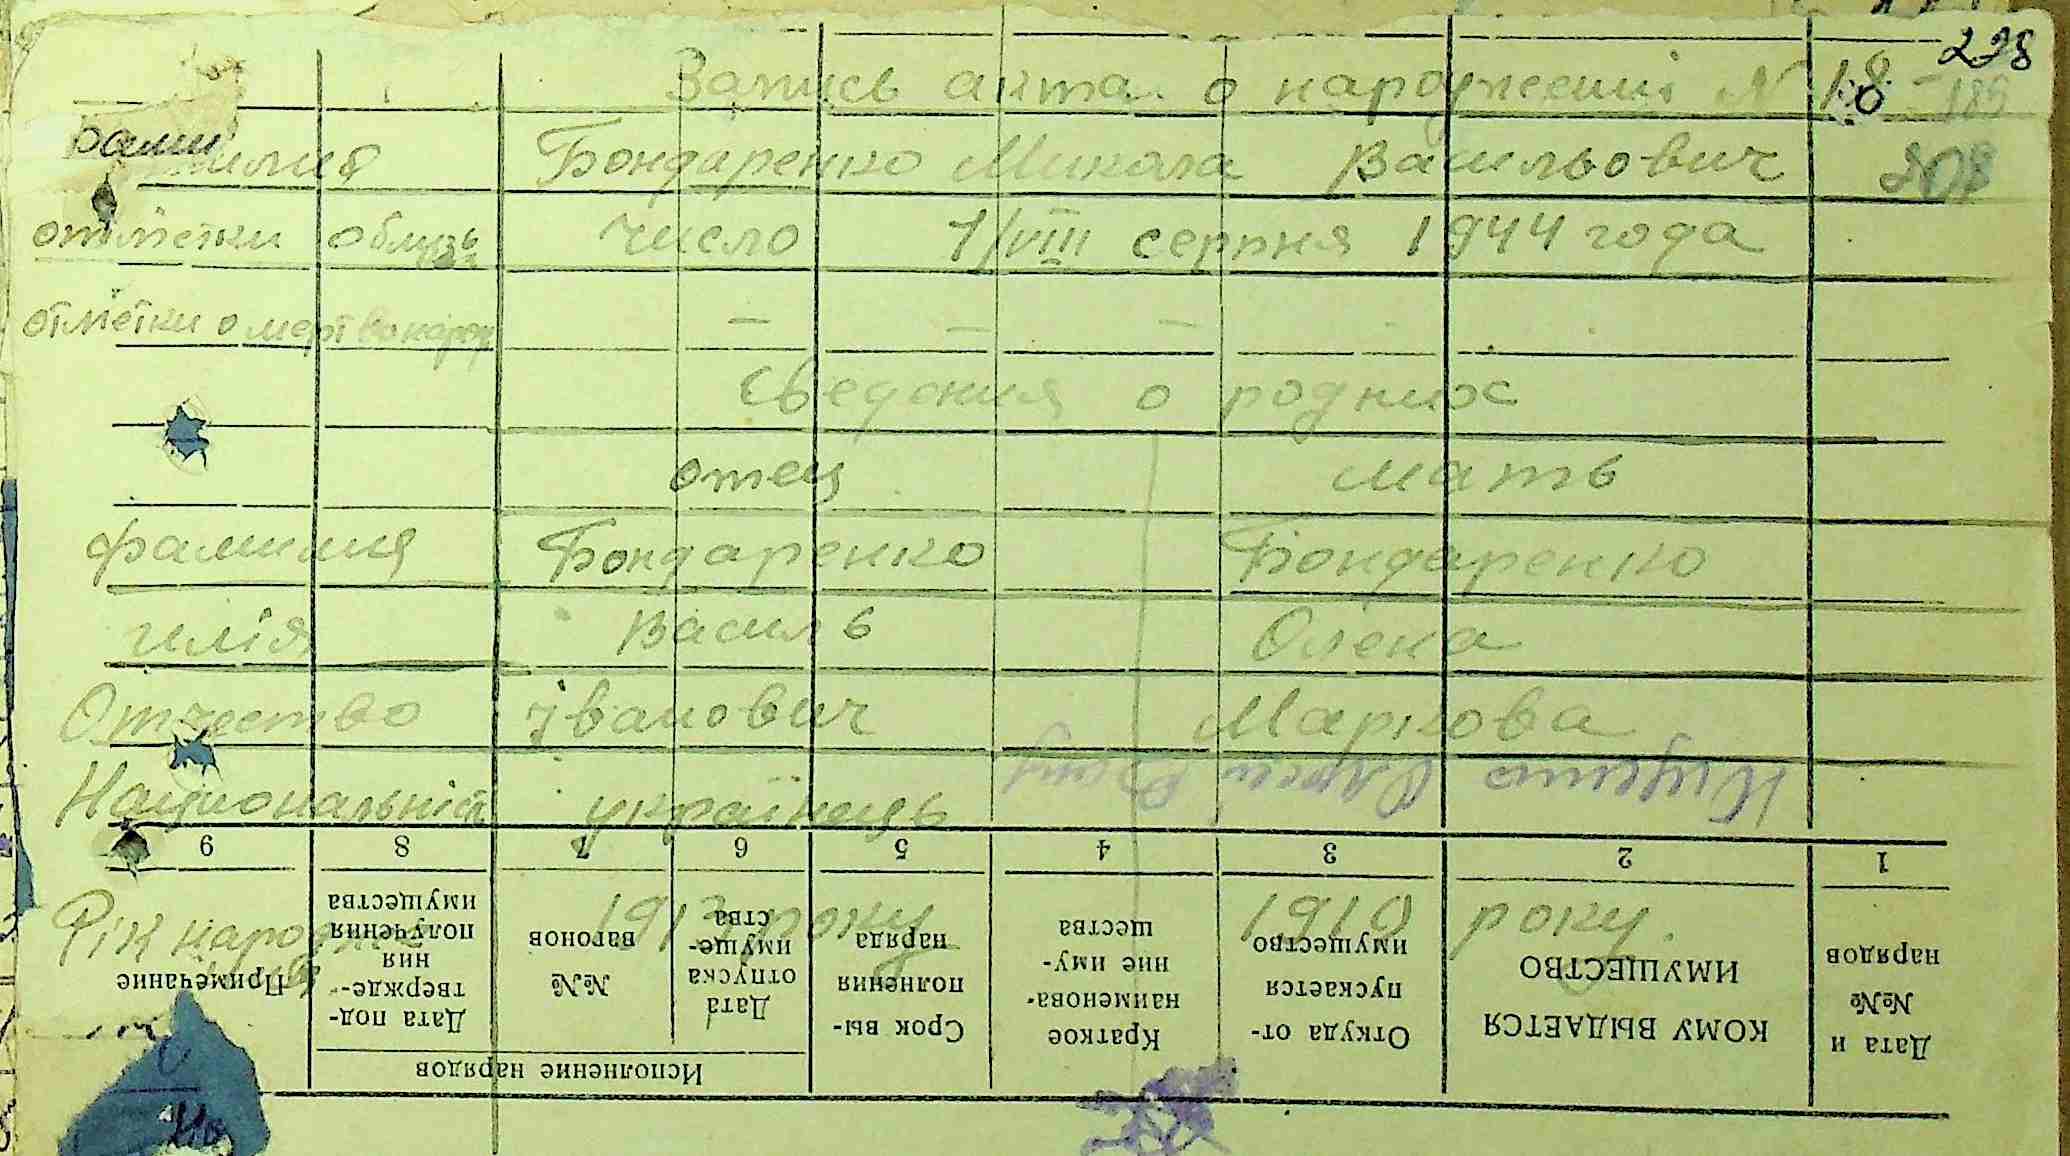 228
Запись акта о народженні № 18 - 185
Фамилия Бондаренко Микола Васильович 208
отметки о близь число 1/VIII серпня 1944 года
отметки о мертвонарод — — —
Сведения о родних
отец мать
фамилия Бондаренко Бондаренко
имія Василь Олена
Отчество Іванович Маркова
Национальніст українець
9 8 7 6 5 4 3 2 1
Рік народж 1913 року 1910 року.
Примечание
Дата под-
твержде-
ния
получения
имущества
№№
вагонов
Дата
отпуска
имуще-
ства
Исполнение нарядов
Срок вы-
полнения
наряда
Краткое
наименова-
ние иму-
щества
Откуда от-
пускается
имущество
КОМУ ВЫДАЕТСЯ
ИМУЩЕСТВО
Дата и
№№
нарядов